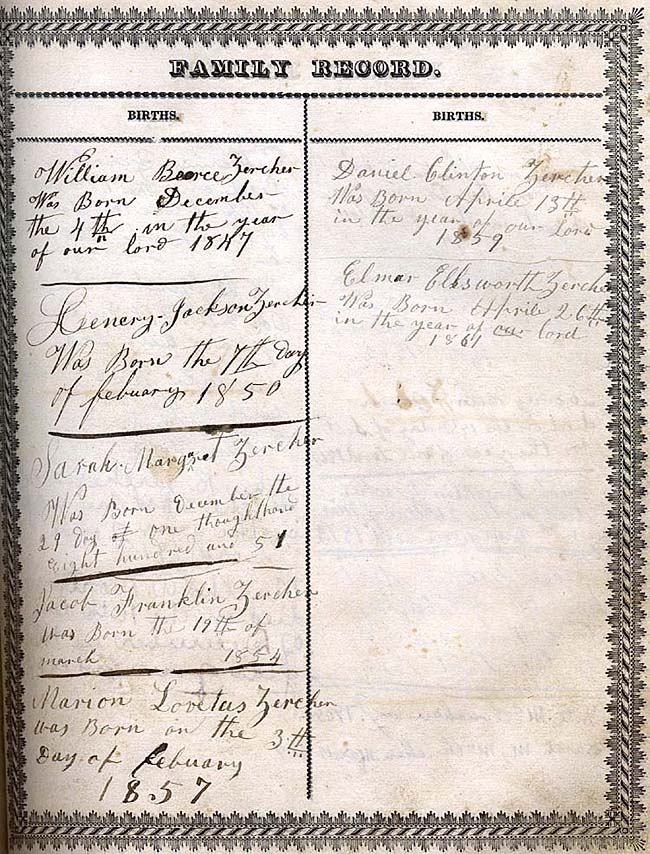 FAMILY RECORD.
BIRTHS.
William Bearce Zercher
Was Born December
the 4th in the year
of our lord 1847
Henery Jackson Zercher
Was Born the 7th day
of febuary 1850
Sarah Margret Zercher
Was Born December the
29 day of one thoughthand
Eight hundred and 51
Jacob Franklin Zercher
was Born the 19th of
march 1854
Marion Lovetus Zercher
was Born on the 3th
Day of febuary
1857
BIRTHS.
Daniel Clinton Zercher
Was Born Aprile 13th
in the year of our Lord
1859
Elmar Ellsworth Zerche
Was Born Aprile 26th
in the year of our lord
1861